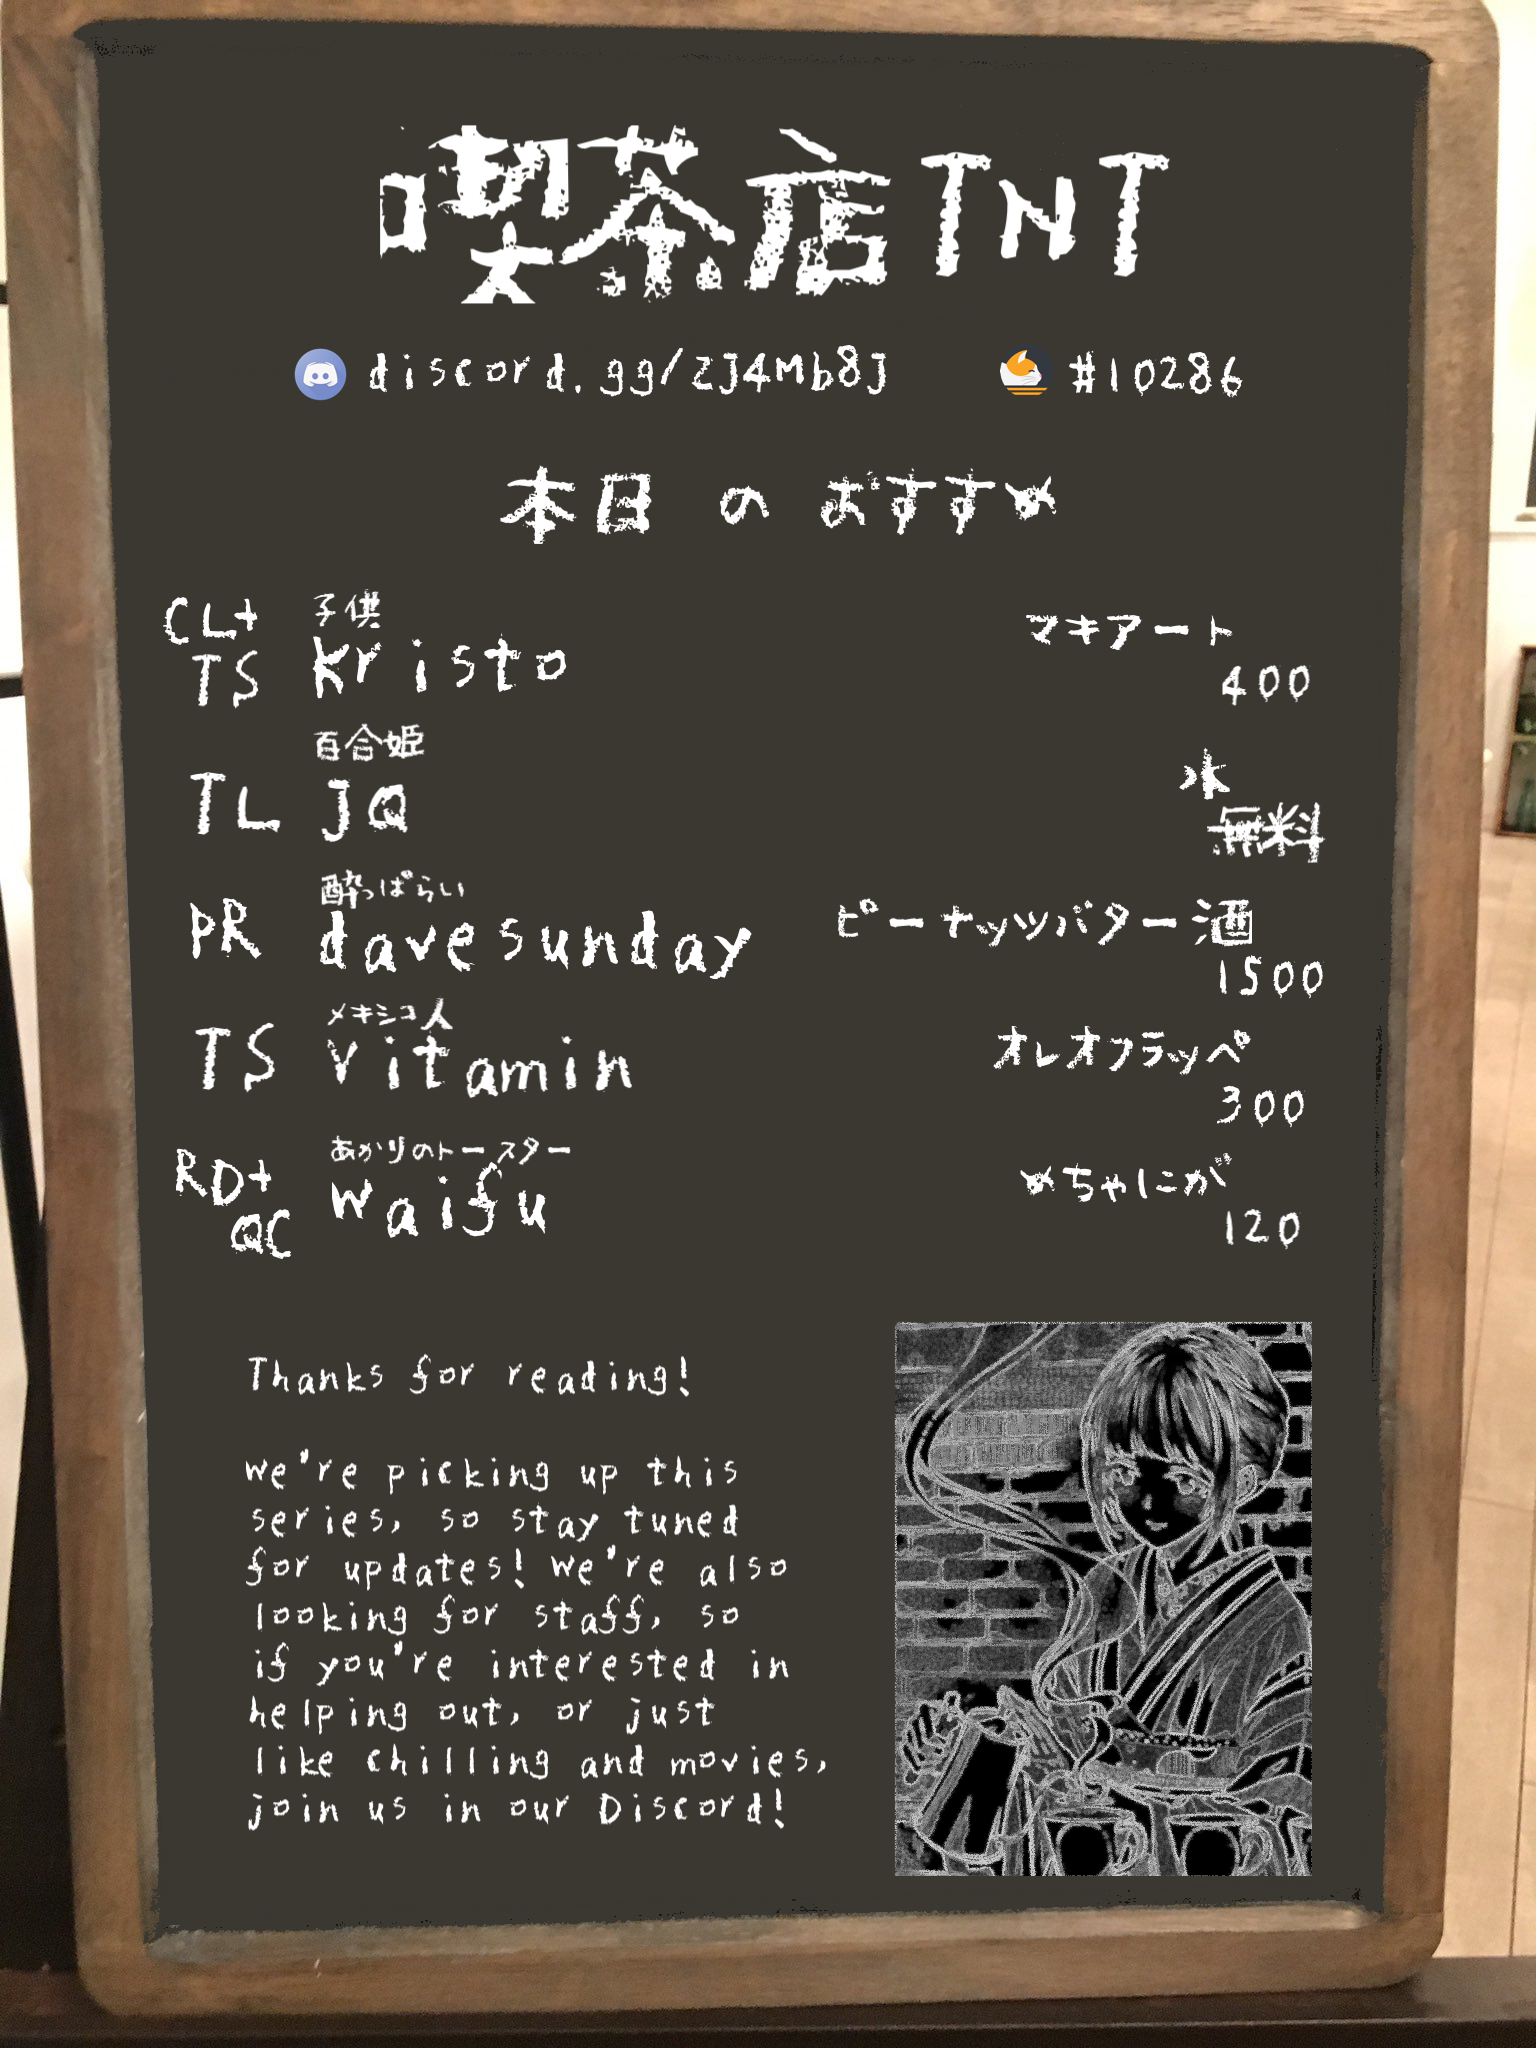 喫茶店TNT
discord.gg/ZJ4Mb8J #10286
本日 の おすすめ
CL+ TS 子供 kristo マキアート 400
TL 百合姫 JQ 水 無料
PR 酔っぱらい davesunday ピーナッツバター酒 1500
TS メキシコ人 vitamin オレオフラッペ 300
RD+ QC あかりのトースター waifu めちゃにが 120
Thanks for reading!
we're picking up this
series, so stay tuned
for updates! we're also
looking for staff, so
if you're interested in
helping out, or just
like chilling and movies,
join us in our Discord!